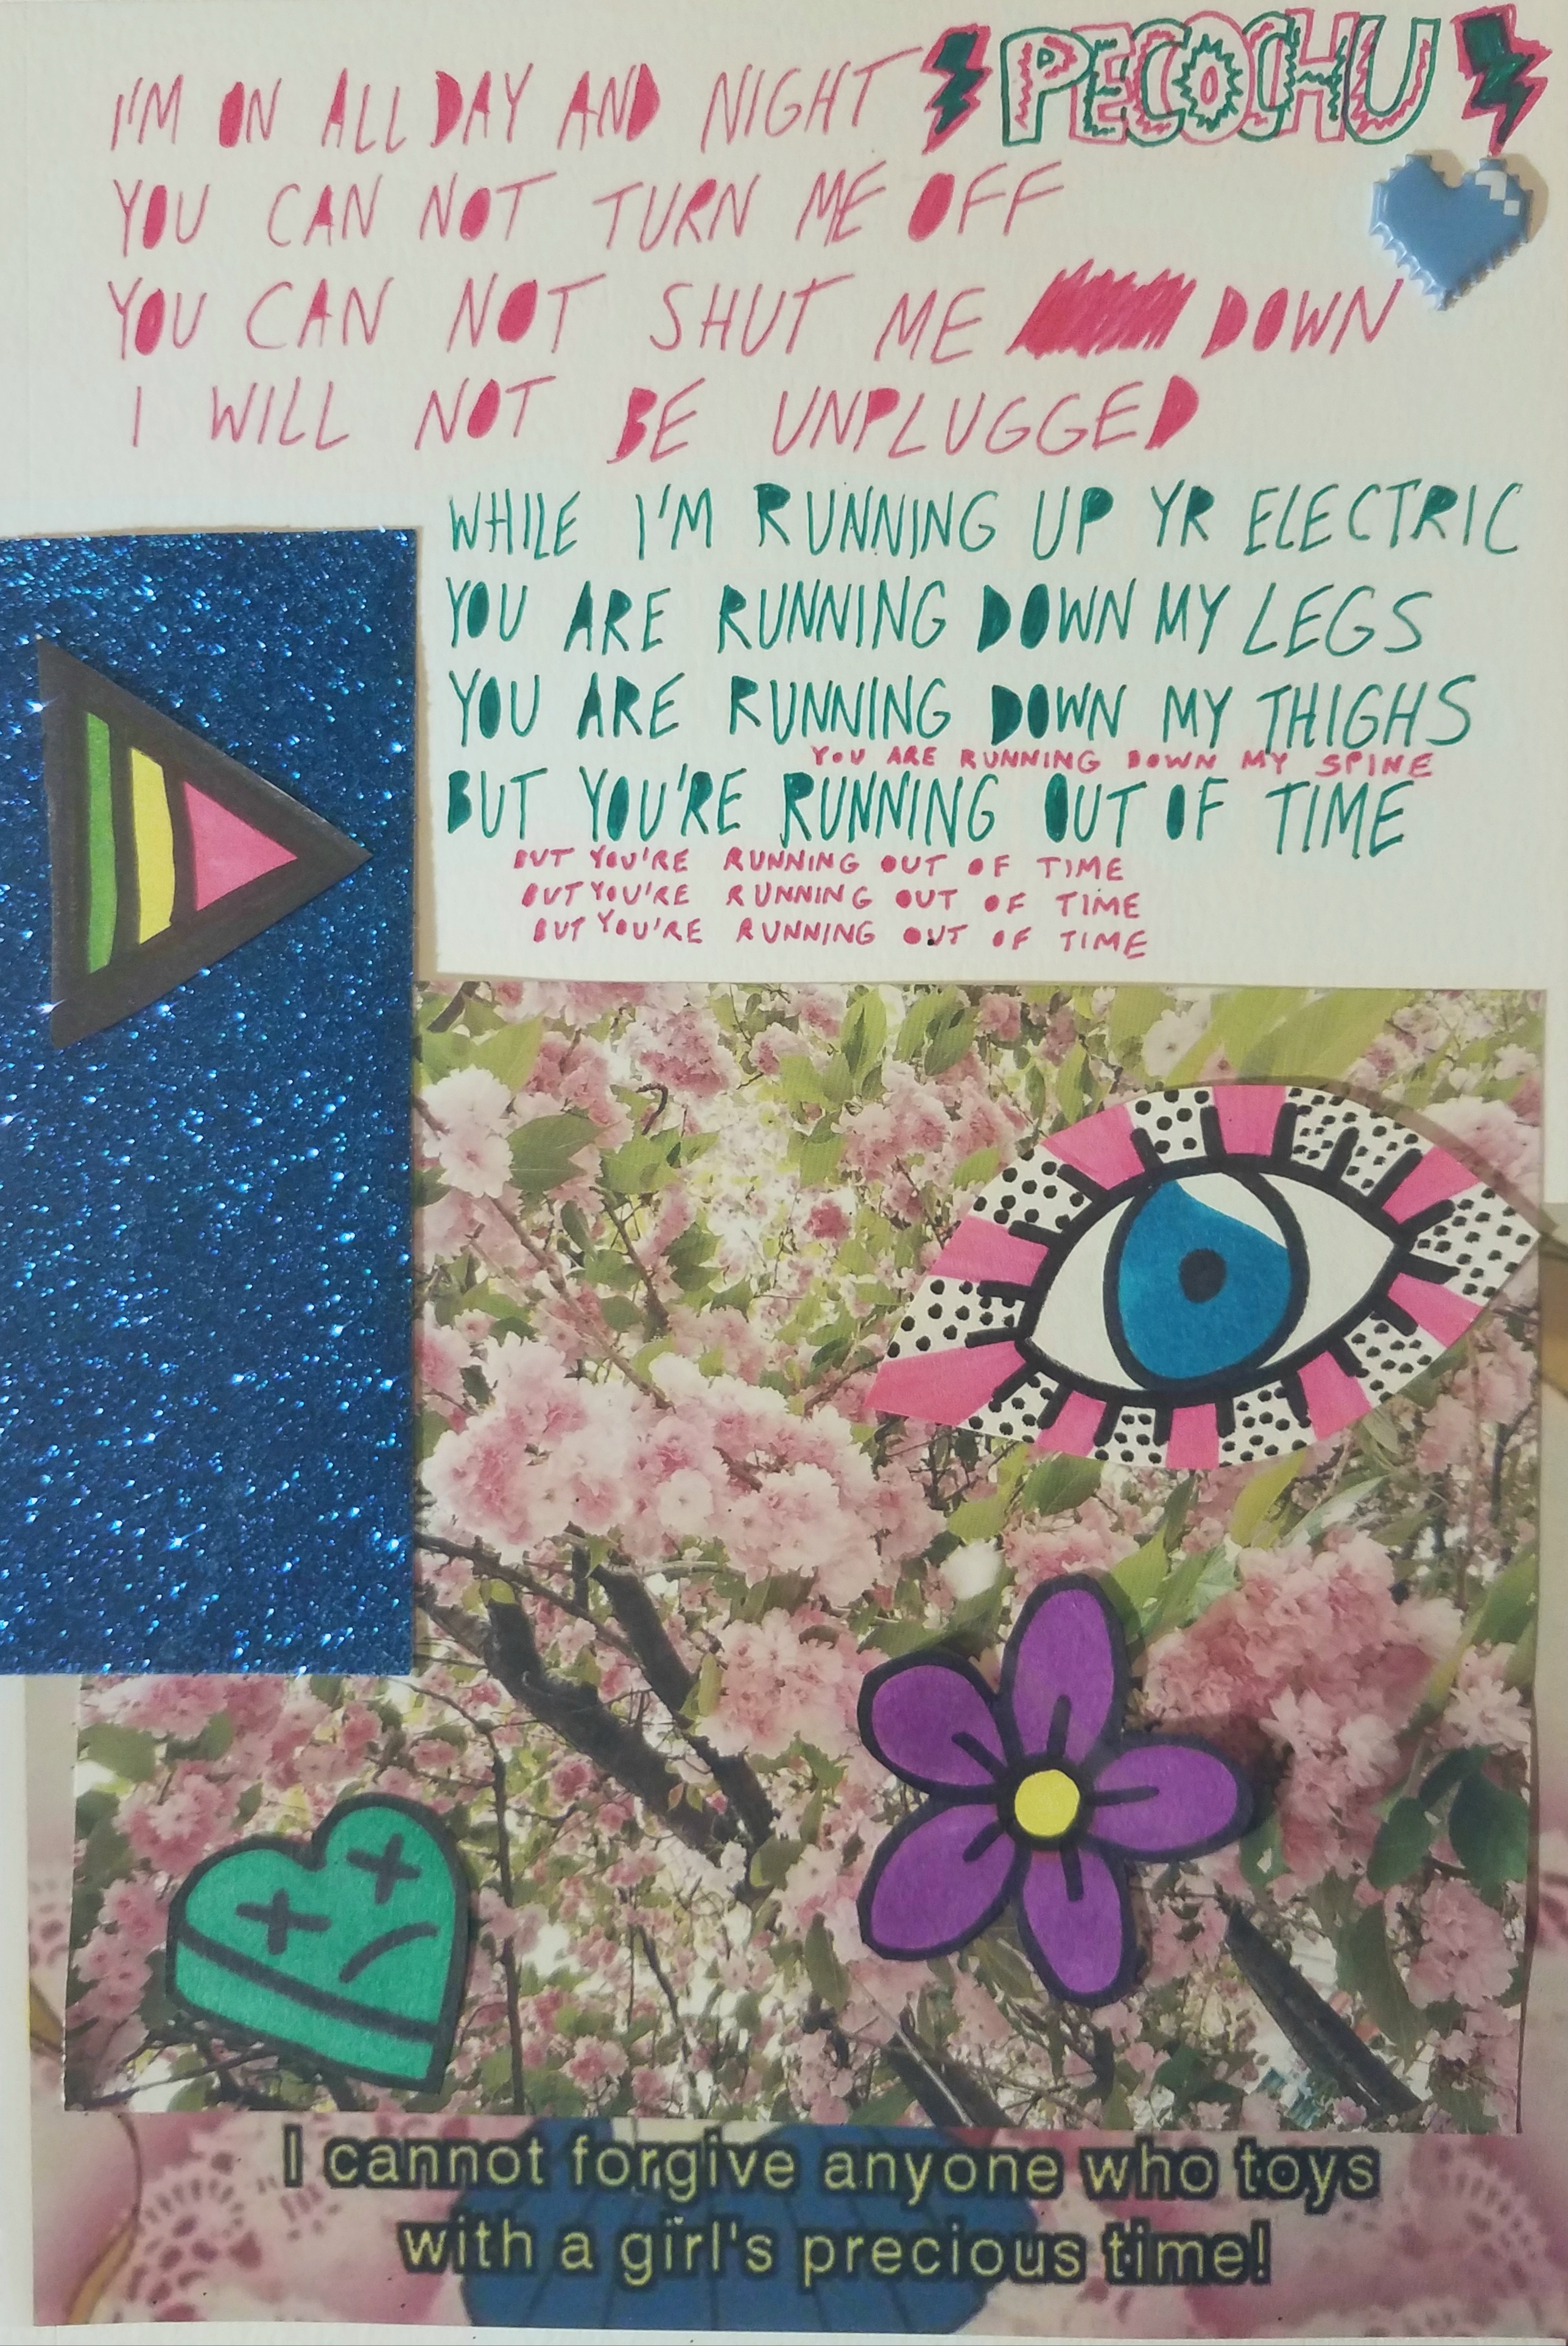 I'M ON ALL DAY AND NIGHT PECOCHU
YOU CAN NOT TURN ME OFF
YOU CAN NOT SHUT ME DOWN
I WILL NOT BE UNPLUGGED
WHILE I'M RUNNING UP YR ELECTRIC
YOU ARE RUNNING DOWN MY LEGS
YOU ARE RUNNING DOWN MY THIGHS
YOU ARE RUNNING DOWN MY SPINE
BUT YOU'RE RUNNING OUT OF TIME
BUT YOU'RE RUNNING OUT OF TIME
BUT YOU'RE RUNNING OUT OF TIME
BUT YOU'RE RUNNING OUT OF TIME
I cannot forgive anyone who toys
with a girl's precious time!